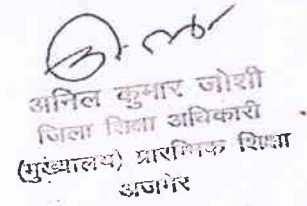 अनिल कुमार जोशी
जिला शिक्षा अधिकारी
(मुख्यालय) प्रारम्भिक शिक्षा
अजमेर